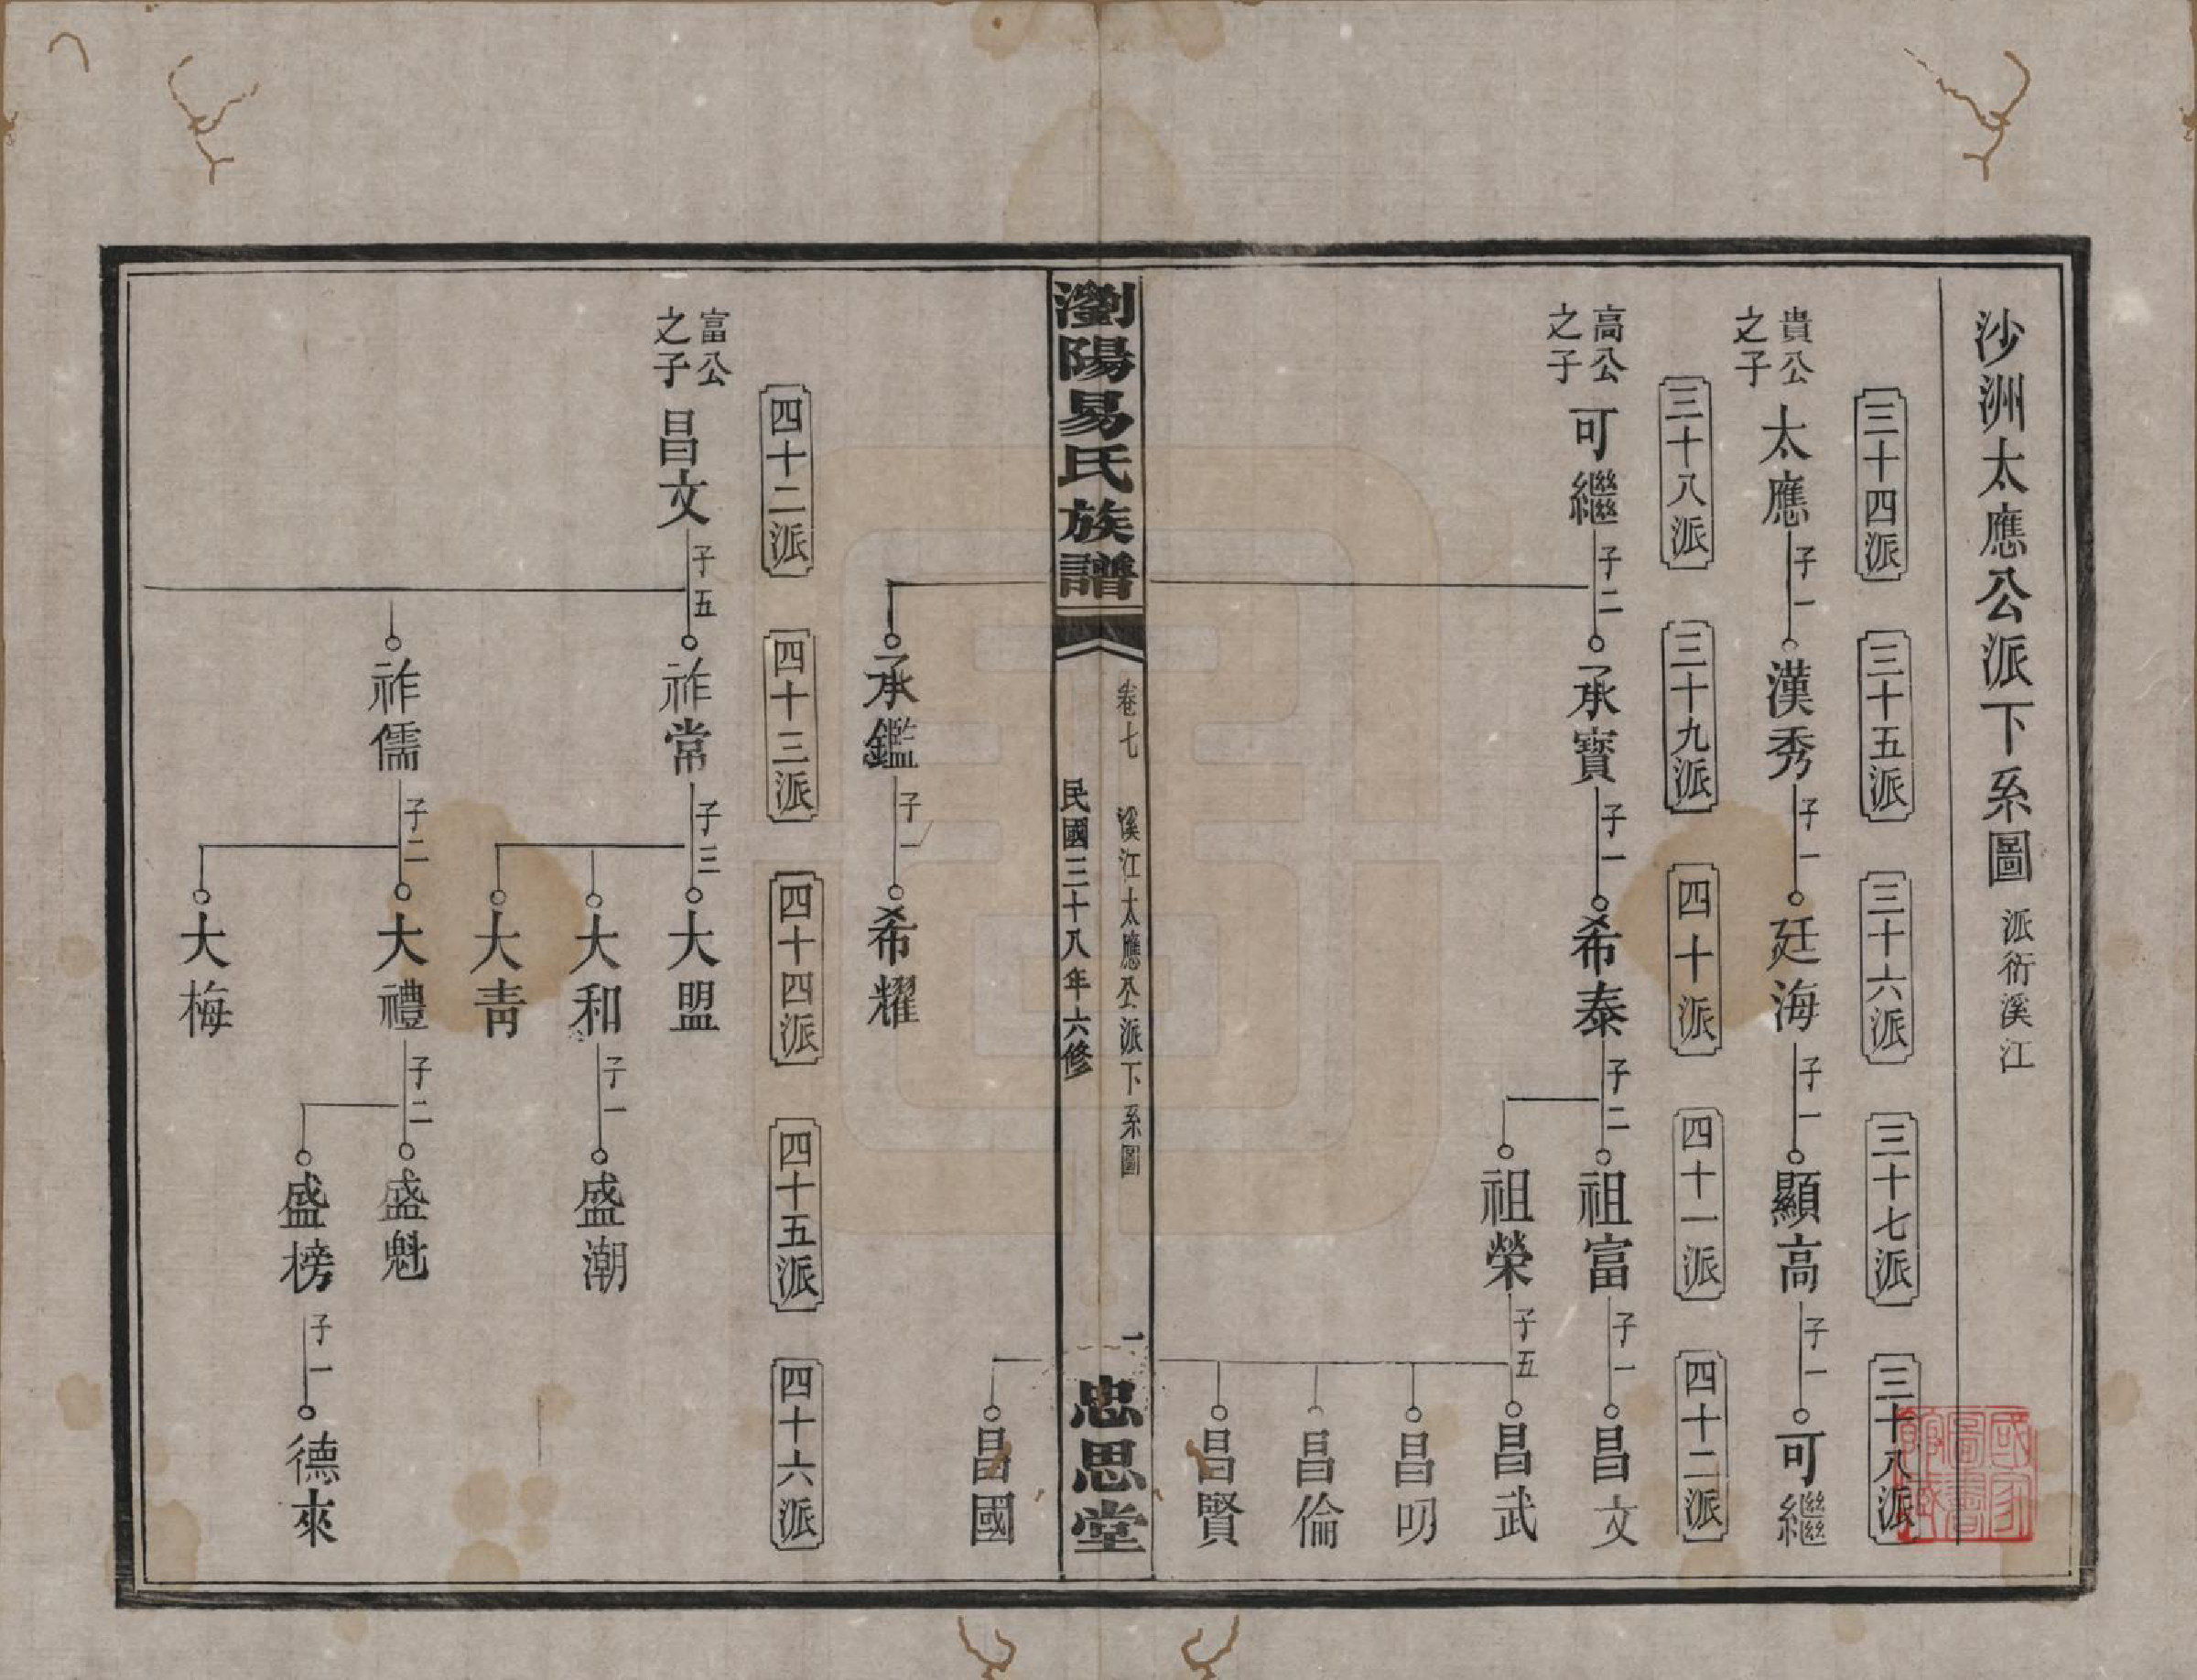 沙洲太應公派下系圖 派衍溪江
三十四派 三十五派 三十六派 三十七派 三十八派
貴公之子 太應 子一 漢秀 子一 廷海 子一 顯高 子一 可繼
三十八派 三十九派 四十派 四十一派 四十二派
高公之子 可繼 子二 承寶 子一 希泰 子二 祖富 子一 昌文
祖榮 子五 昌武
昌明
昌倫
昌賢
瀏陽易氏族譜 卷七 溪江太應公派下系圖 一 忠思堂
民國三十八年六修
昌國
承鑑 子一 希耀
四十二派 四十三派 四十四派 四十五派 四十六派
富公之子 昌文 子五 祚常 子三 大盟
大和 子一 盛潮
大青
祚儒 子二 大禮 子二 盛魁
盛榜 子一 德來
大梅